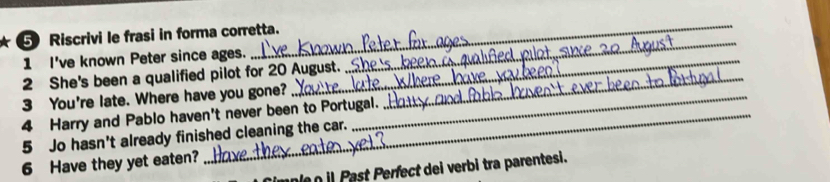 ★ 5 Riscrivi le frasi in forma corretta.
1 I've known Peter since ages. I've known Peter for ages
2 She's been a qualified pilot for 20 August. She's been a qualified pilot since 20 August
3 You're late. Where have you gone? You're late. Where have you been?
4 Harry and Pablo haven't never been to Portugal. Harry and Pablo haven't ever been to Portugal
5 Jo hasn't already finished cleaning the car.
6 Have they yet eaten? Have they eaten yet?
il Past Perfect dei verbi tra parentesi.